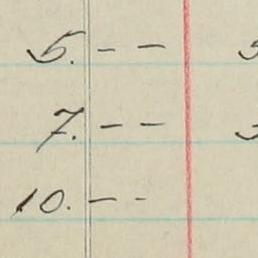 5. - -
7. - -
10. - -